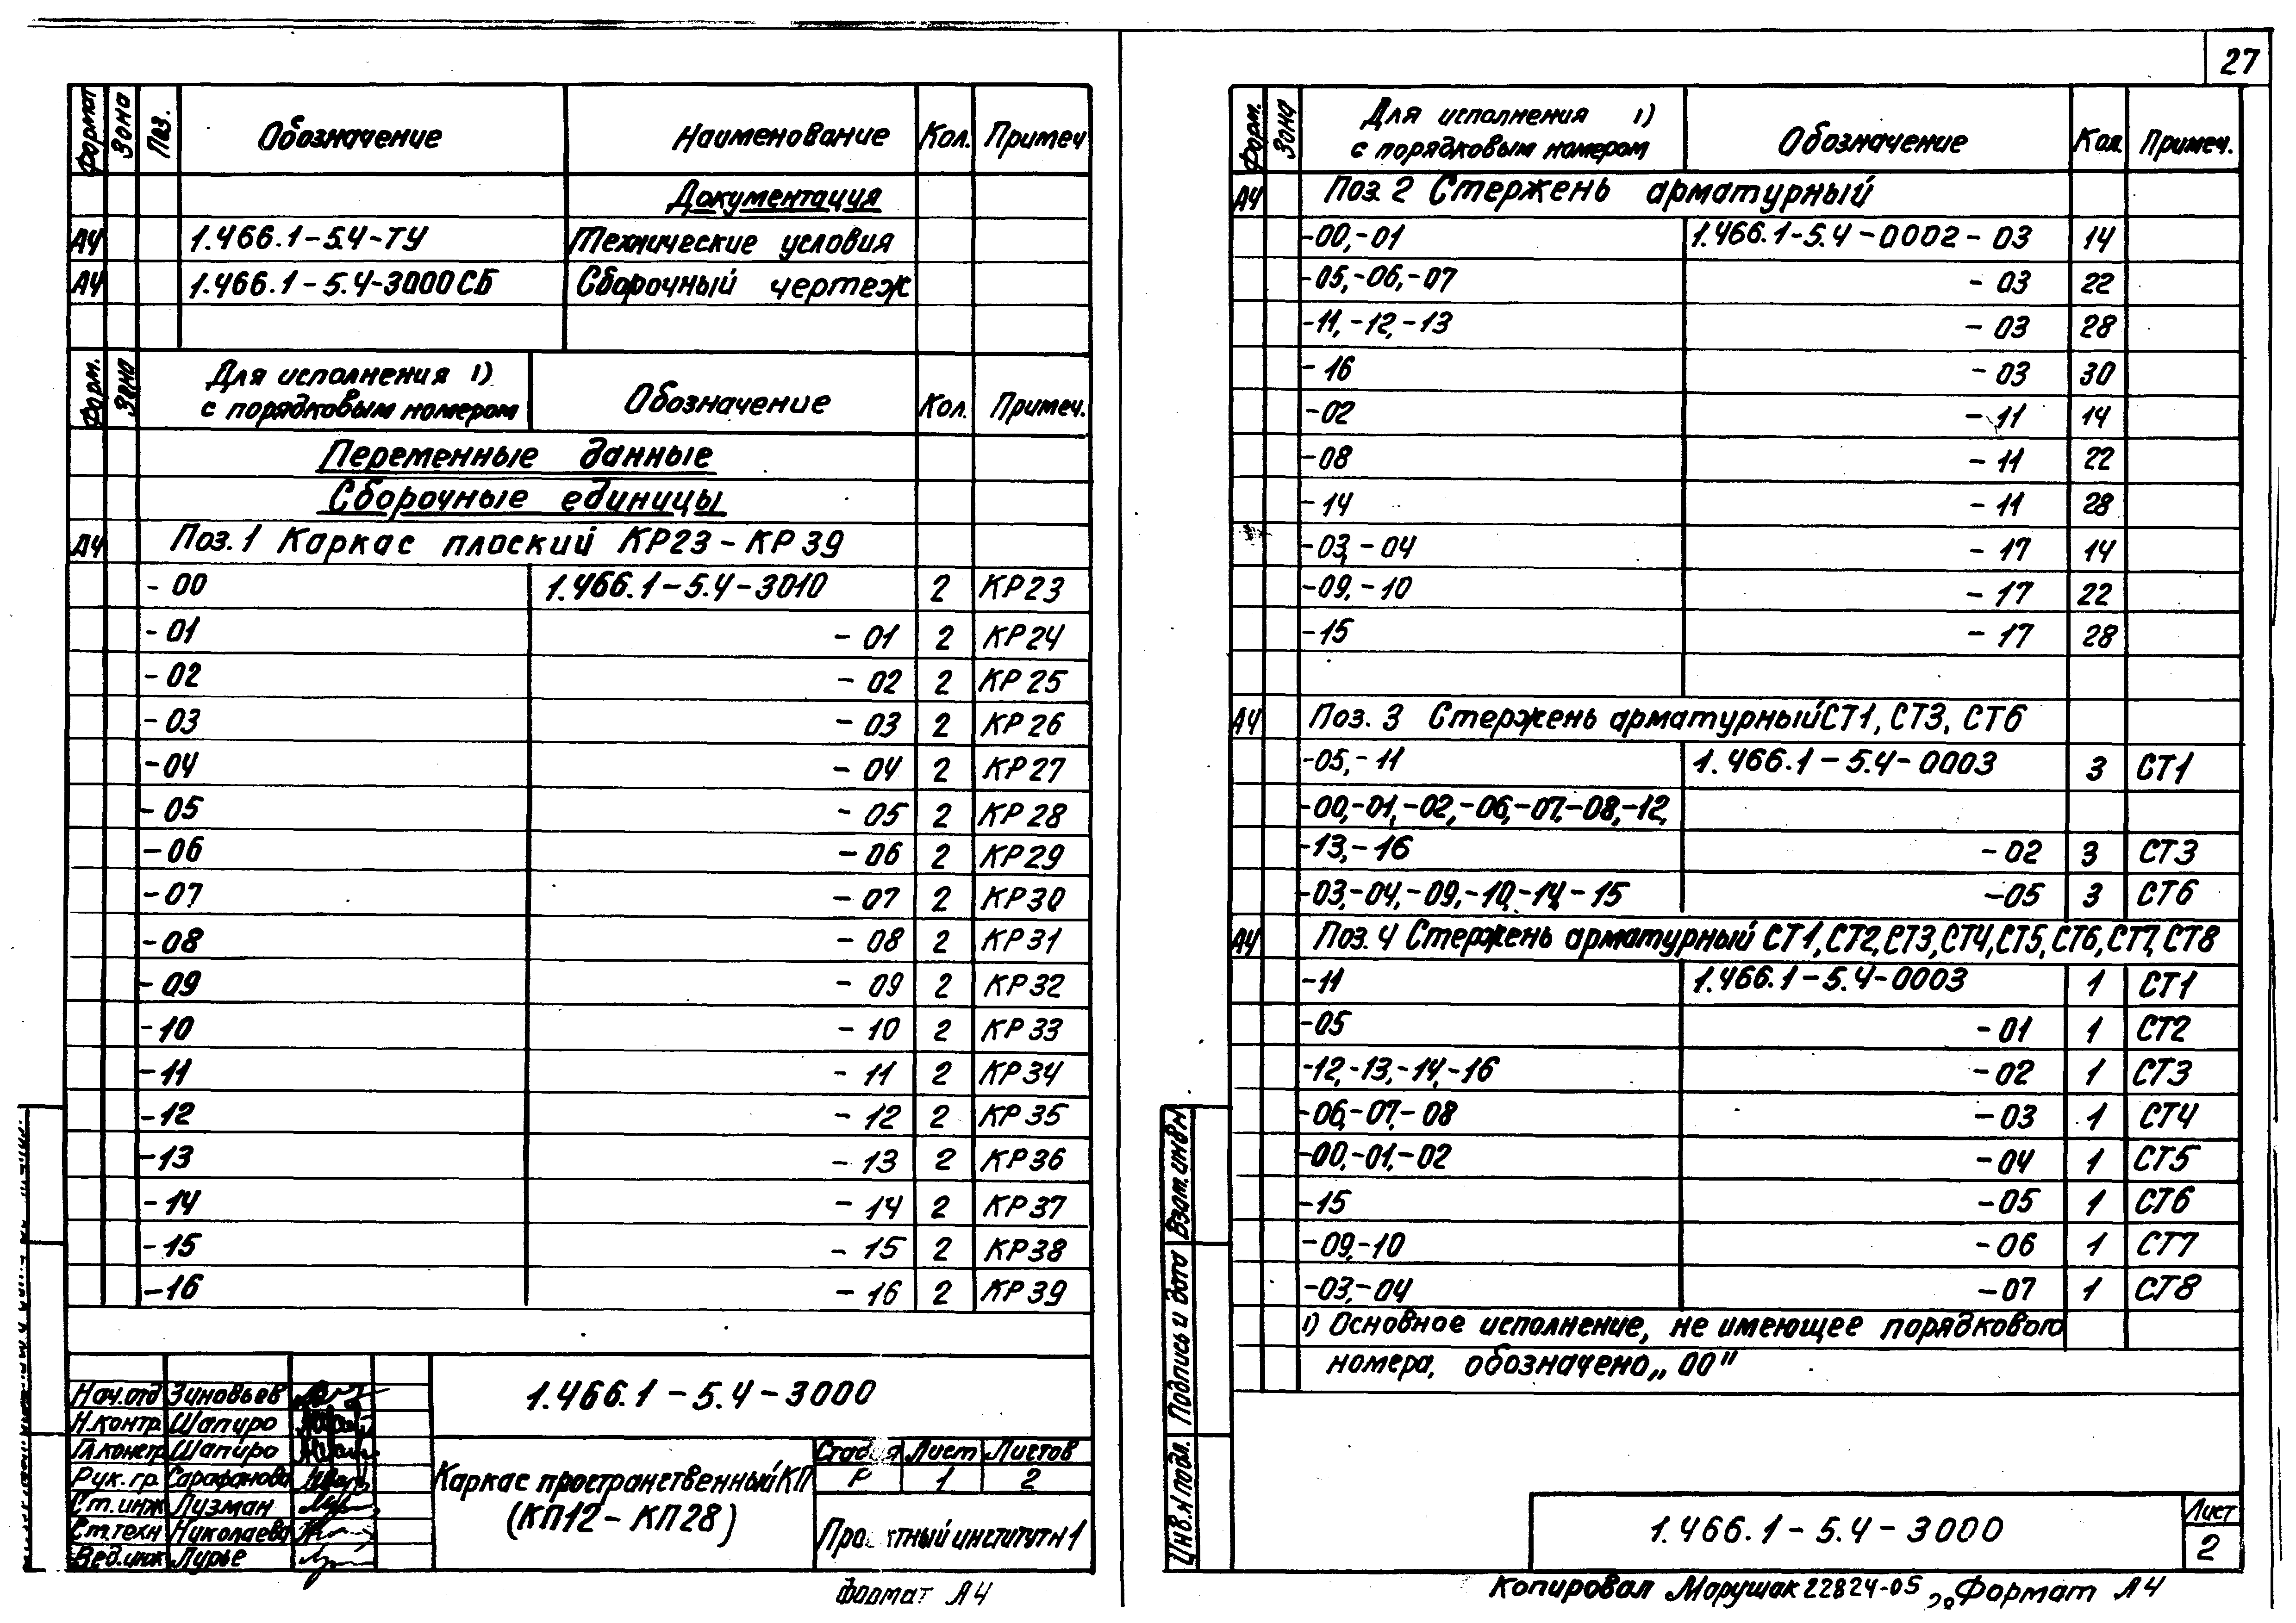 27
Формат Зона Поз. Обозначение Наименование Кол. Примеч
Документация
А4 1.466.1-5.4-ТУ Технические условия
А4 1.466.1-5.4-3000СБ Сборочный чертеж
Форм. Зона Для исполнения 1) с порядковым номером Обозначение Кол. Примеч.
Переменные данные
Сборочные единицы
А4 Поз.1 Каркас плоский КР23-КР39
-00 1.466.1-5.4-3010 2 КР23
-01 -01 2 КР24
-02 -02 2 КР25
-03 -03 2 КР26
-04 -04 2 КР27
-05 -05 2 КР28
-06 -06 2 КР29
-07 -07 2 КР30
-08 -08 2 КР31
-09 -09 2 КР32
-10 -10 2 КР33
-11 -11 2 КР34
-12 -12 2 КР35
-13 -13 2 КР36
-14 -14 2 КР37
-15 -15 2 КР38
-16 -16 2 КР39
Нач.отд Зиновьев
Н.контр. Шапиро
Гл.констр Шапиро
Рук. гр. Сарафанова
Ст.инж Лузман
Ст.техн Николаева
Вед.инж Лурье
1.466.1-5.4-3000
Каркас пространственный КП
(КП12-КП28)
Стадия Лист Листов
Р 1 2
Проектный институт N1
Формат А4
Форм. Зона Для исполнения 1) с порядковым номером Обозначение Кол. Примеч.
А4 Поз.2 Стержень арматурный
-00,-01 1.466.1-5.4-0002-03 14
-05,-06,-07 -03 22
-11,-12,-13 -03 28
-16 -03 30
-02 -11 14
-08 -11 22
-14 -11 28
-03,-04 -17 14
-09,-10 -17 22
-15 -17 28
А4 Поз. 3 Стержень арматурный СТ1, СТ3, СТ6
-05,-11 1.466.1-5.4-0003 3 СТ1
-00,-01,-02,-06,-07,-08,-12,
-13,-16 -02 3 СТ3
-03,-04,-09,-10,-14,-15 -05 3 СТ6
А4 Поз. 4 Стержень арматурный СТ1,СТ2,СТ3,СТ4,СТ5,СТ6,СТ7,СТ8
-11 1.466.1-5.4-0003 1 СТ1
-05 -01 1 СТ2
-12,-13,-14,-16 -02 1 СТ3
-06,-07,-08 -03 1 СТ4
-00,-01,-02 -04 1 СТ5
-15 -05 1 СТ6
-09,-10 -06 1 СТ7
-03,-04 -07 1 СТ8
1) Основное исполнение, не имеющее порядкового
номера, обозначено „00"
Взам. инв N
Подпись и дата
Инв. N подл.
1.466.1-5.4-3000
Лист
2
Копировал Марушак 22824-05 28 Формат А4